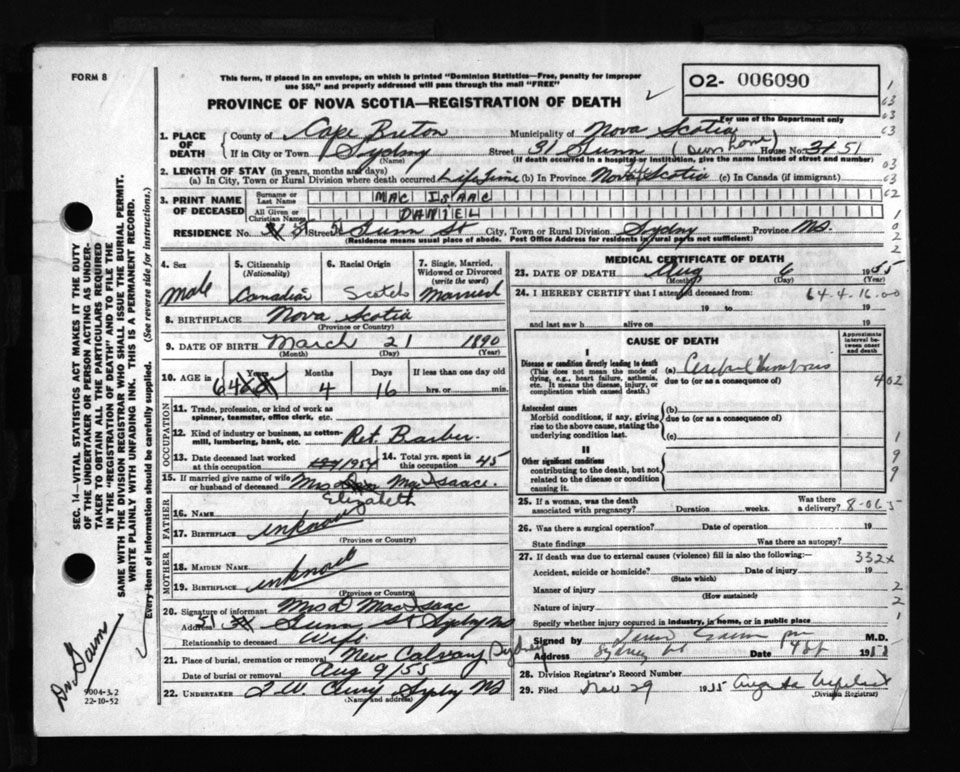 FORM 8
This form, if placed in an envelope, on which is printed "Dominion Statistics—Free, penalty for improper
use $50," and properly addressed will pass through the mail "FREE"
PROVINCE OF NOVA SCOTIA—REGISTRATION OF DEATH
02- 006090
For use of the Department only
1. PLACE OF DEATH
County of Cape Breton Municipality of Nova Scotia
If in City or Town Sydney (Name) Street 31 Gunn House No. 51
(If death occurred in a hospital or institution, give the name instead of street and number)
2. LENGTH OF STAY (in years, months and days)
(a) In City, Town or Rural Division where death occurred Life Time (b) In Province Nova Scotia (c) In Canada (if immigrant)
3. PRINT NAME OF DECEASED
Surname or Last Name MAC ISAAC
All Given or Christian Names DANIEL
RESIDENCE No. Street Gunn St City, Town or Rural Division Sydney Province NS.
(Residence means usual place of abode. Post Office Address for residents in rural parts not sufficient)
4. Sex Male
5. Citizenship (Nationality) Canadian
6. Racial Origin Scotch
7. Single, Married, Widowed or Divorced (write the word) Married
8. BIRTHPLACE Nova Scotia
(Province or Country)
9. DATE OF BIRTH March 21 1890
(Month) (Day) (Year)
10. AGE in Years 64 Months 4 Days 16 If less than one day old hrs. or min.
OCCUPATION
11. Trade, profession, or kind of work as spinner, teamster, office clerk, etc.
12. Kind of industry or business, as cotton-mill, lumbering, bank, etc. Ret. Barber.
13. Date deceased last worked at this occupation 1954
14. Total yrs. spent in this occupation 45
15. If married give name of wife or husband of deceased Mrs MacIsaac.
Elizabeth
FATHER
16. Name
17. Birthplace unknown
(Province or Country)
MOTHER
18. Maiden Name
19. Birthplace unknown
(Province or Country)
20. Signature of informant Mrs D MacIsaac
Address 51 Gunn St Sydney NS
Relationship to deceased Wife
21. Place of burial, cremation or removal New Calvary Sydney
Date of burial or removal Aug 9/55
22. UNDERTAKER
(Name and address)
MEDICAL CERTIFICATE OF DEATH
23. DATE OF DEATH Aug 6 1955
(Month) (Day)
24. I HEREBY CERTIFY that I attended deceased from:
64.4.16.00
19 to 19
and last saw h alive on 19
CAUSE OF DEATH
Approximate interval between onset and death
I
Disease or condition directly leading to death
(This does not mean the mode of dying, e.g., heart failure, asthenia, etc. It means the disease, injury, or complication which caused death.)
(a) Cerebral Thrombosis
due to (or as a consequence of)
402
Antecedent causes
Morbid conditions, if any, giving rise to the above cause, stating the underlying condition last.
(b)
due to (or as a consequence of)
(c)
II
Other significant conditions
contributing to the death, but not related to the disease or condition causing it.
25. If a woman, was the death associated with pregnancy? Duration weeks. Was there a delivery? 8-06 5
26. Was there a surgical operation? Date of operation 19
State findings Was there an autopsy?
27. If death was due to external causes (violence) fill in also the following:—
332x
Accident, suicide or homicide? (State which) Date of injury 19
Manner of injury 2
(How sustained)
Nature of injury 2
Specify whether injury occurred in industry, in home, or in public place 1
Signed by M.D.
Address Sydney Date 19
28. Division Registrar's Record Number
29. Filed Nov 29 1955
(Division Registrar)
SEC. 14—VITAL STATISTICS ACT MAKES IT THE DUTY OF THE UNDERTAKER OR PERSON ACTING AS UNDERTAKER TO OBTAIN ALL THE PARTICULARS REQUIRED IN THE "REGISTRATION OF DEATH" AND TO FILE THE SAME WITH THE DIVISION REGISTRAR WHO SHALL ISSUE THE BURIAL PERMIT.
WRITE PLAINLY WITH UNFADING INK. THIS IS A PERMANENT RECORD.
Every item of information should be carefully supplied. (See reverse side for instructions.)
9004-3.2
22-10-52